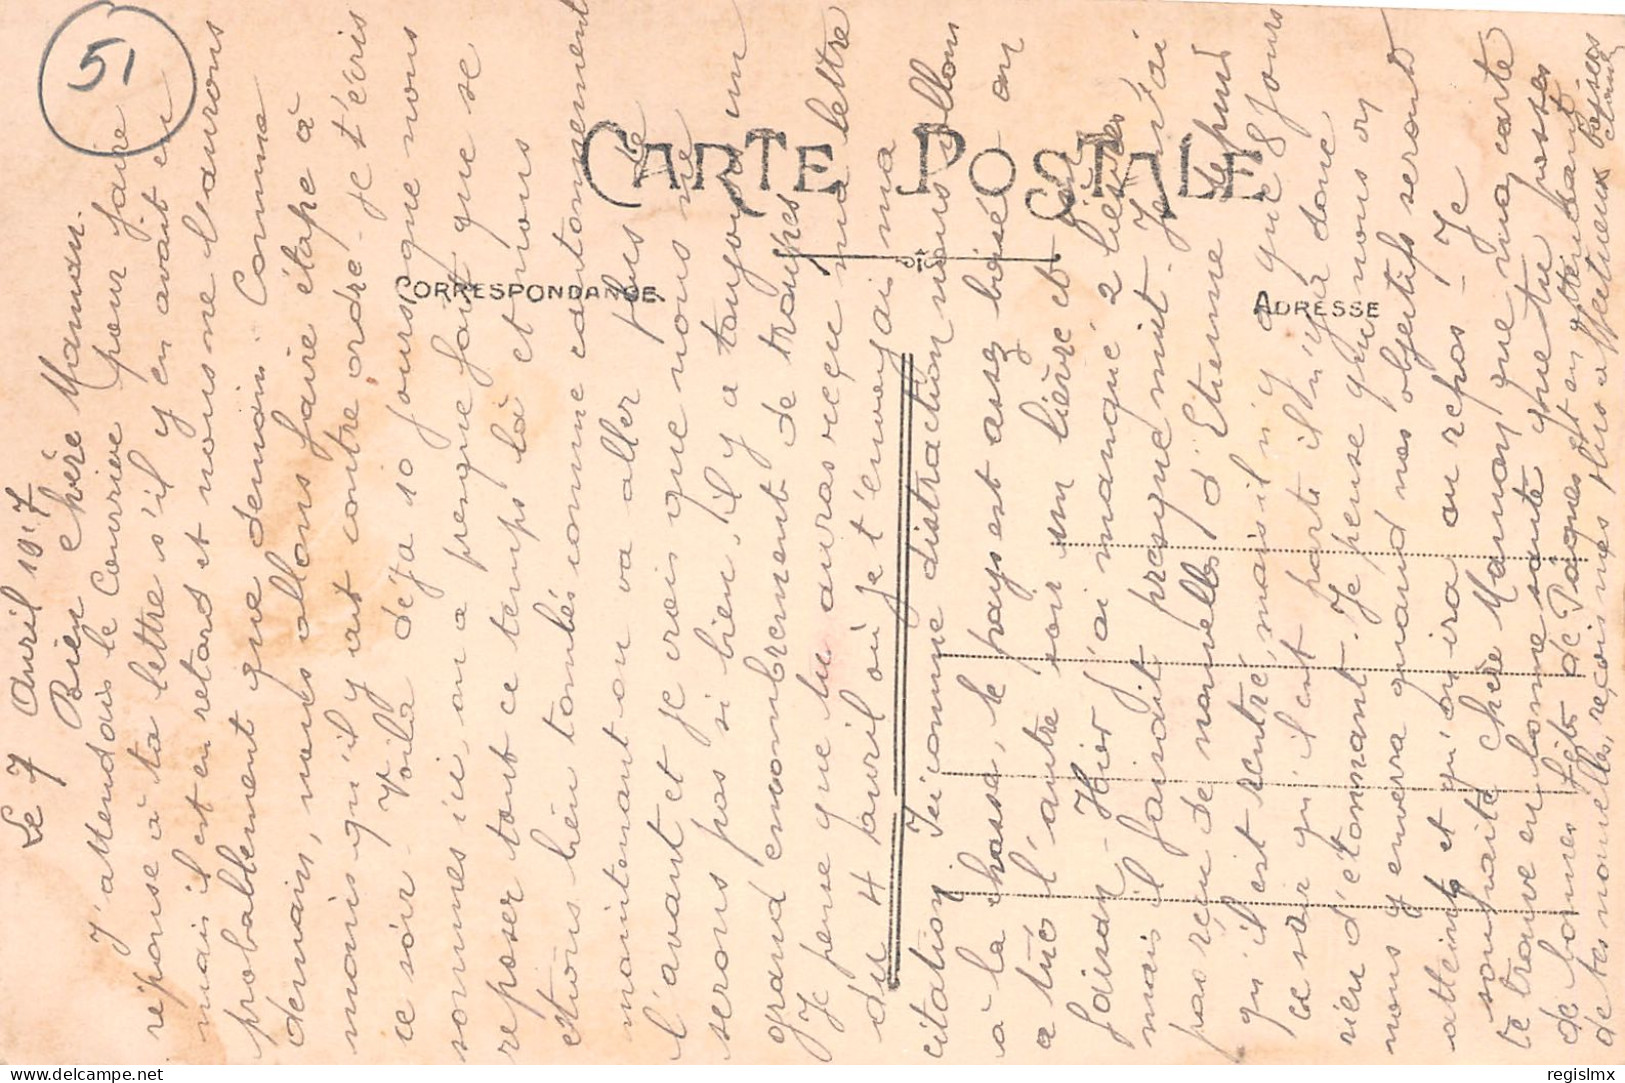 51
CARTE POSTALE
CORRESPONDANCE
ADRESSE
Le 7 Avril 1917
Bien Chère Maman.
J'attendais le Courrier pour faire
réponse à ta lettre s'il y en avait eu
mais il est en retard et nous ne l'aurons
probablement que demain. Comme
demain, nous allons faire étape à
moins qu'il y ait contre ordre. je t'écris
ce soir. Voilà déjà 10 jours que nous
sommes ici, on a presque fait que se
reposer tout ce temps là et nous
étions bien tombés comme cantonnement
maintenant on va aller plus de
l'avant et je crois que nous ne
serons pas si bien. Il y a toujours un
grand encombrement de troupes
Je pense que tu auras reçu ma lettre
du 4 avril où je t'envoyais ma
citation. Ici comme distraction nous allons
à la chasse, le pays est assez boisé on
a tué l'autre soir un lièvre et un
faisan - Hier j'ai manqué 2 lièvres
mais il faisait presque nuit. Je n'ai
pas reçu de nouvelles d'Etienne depuis
qu'il est rentré, mais il n'y a que 8 jours
ce soir qu'il est parti il n'y a donc
rien d'étonnant. Je pense que nous on
nous y enverra quand nos objectifs seront
atteints et qu'on ira au repos - Je
souhaite Chère Maman que ma carte
te trouve en bonne santé que tu passes
de bonnes fêtes de Pâques et en attendant
de tes nouvelles, reçois mes plus affectueux baisers
regislmx
delcampe.net